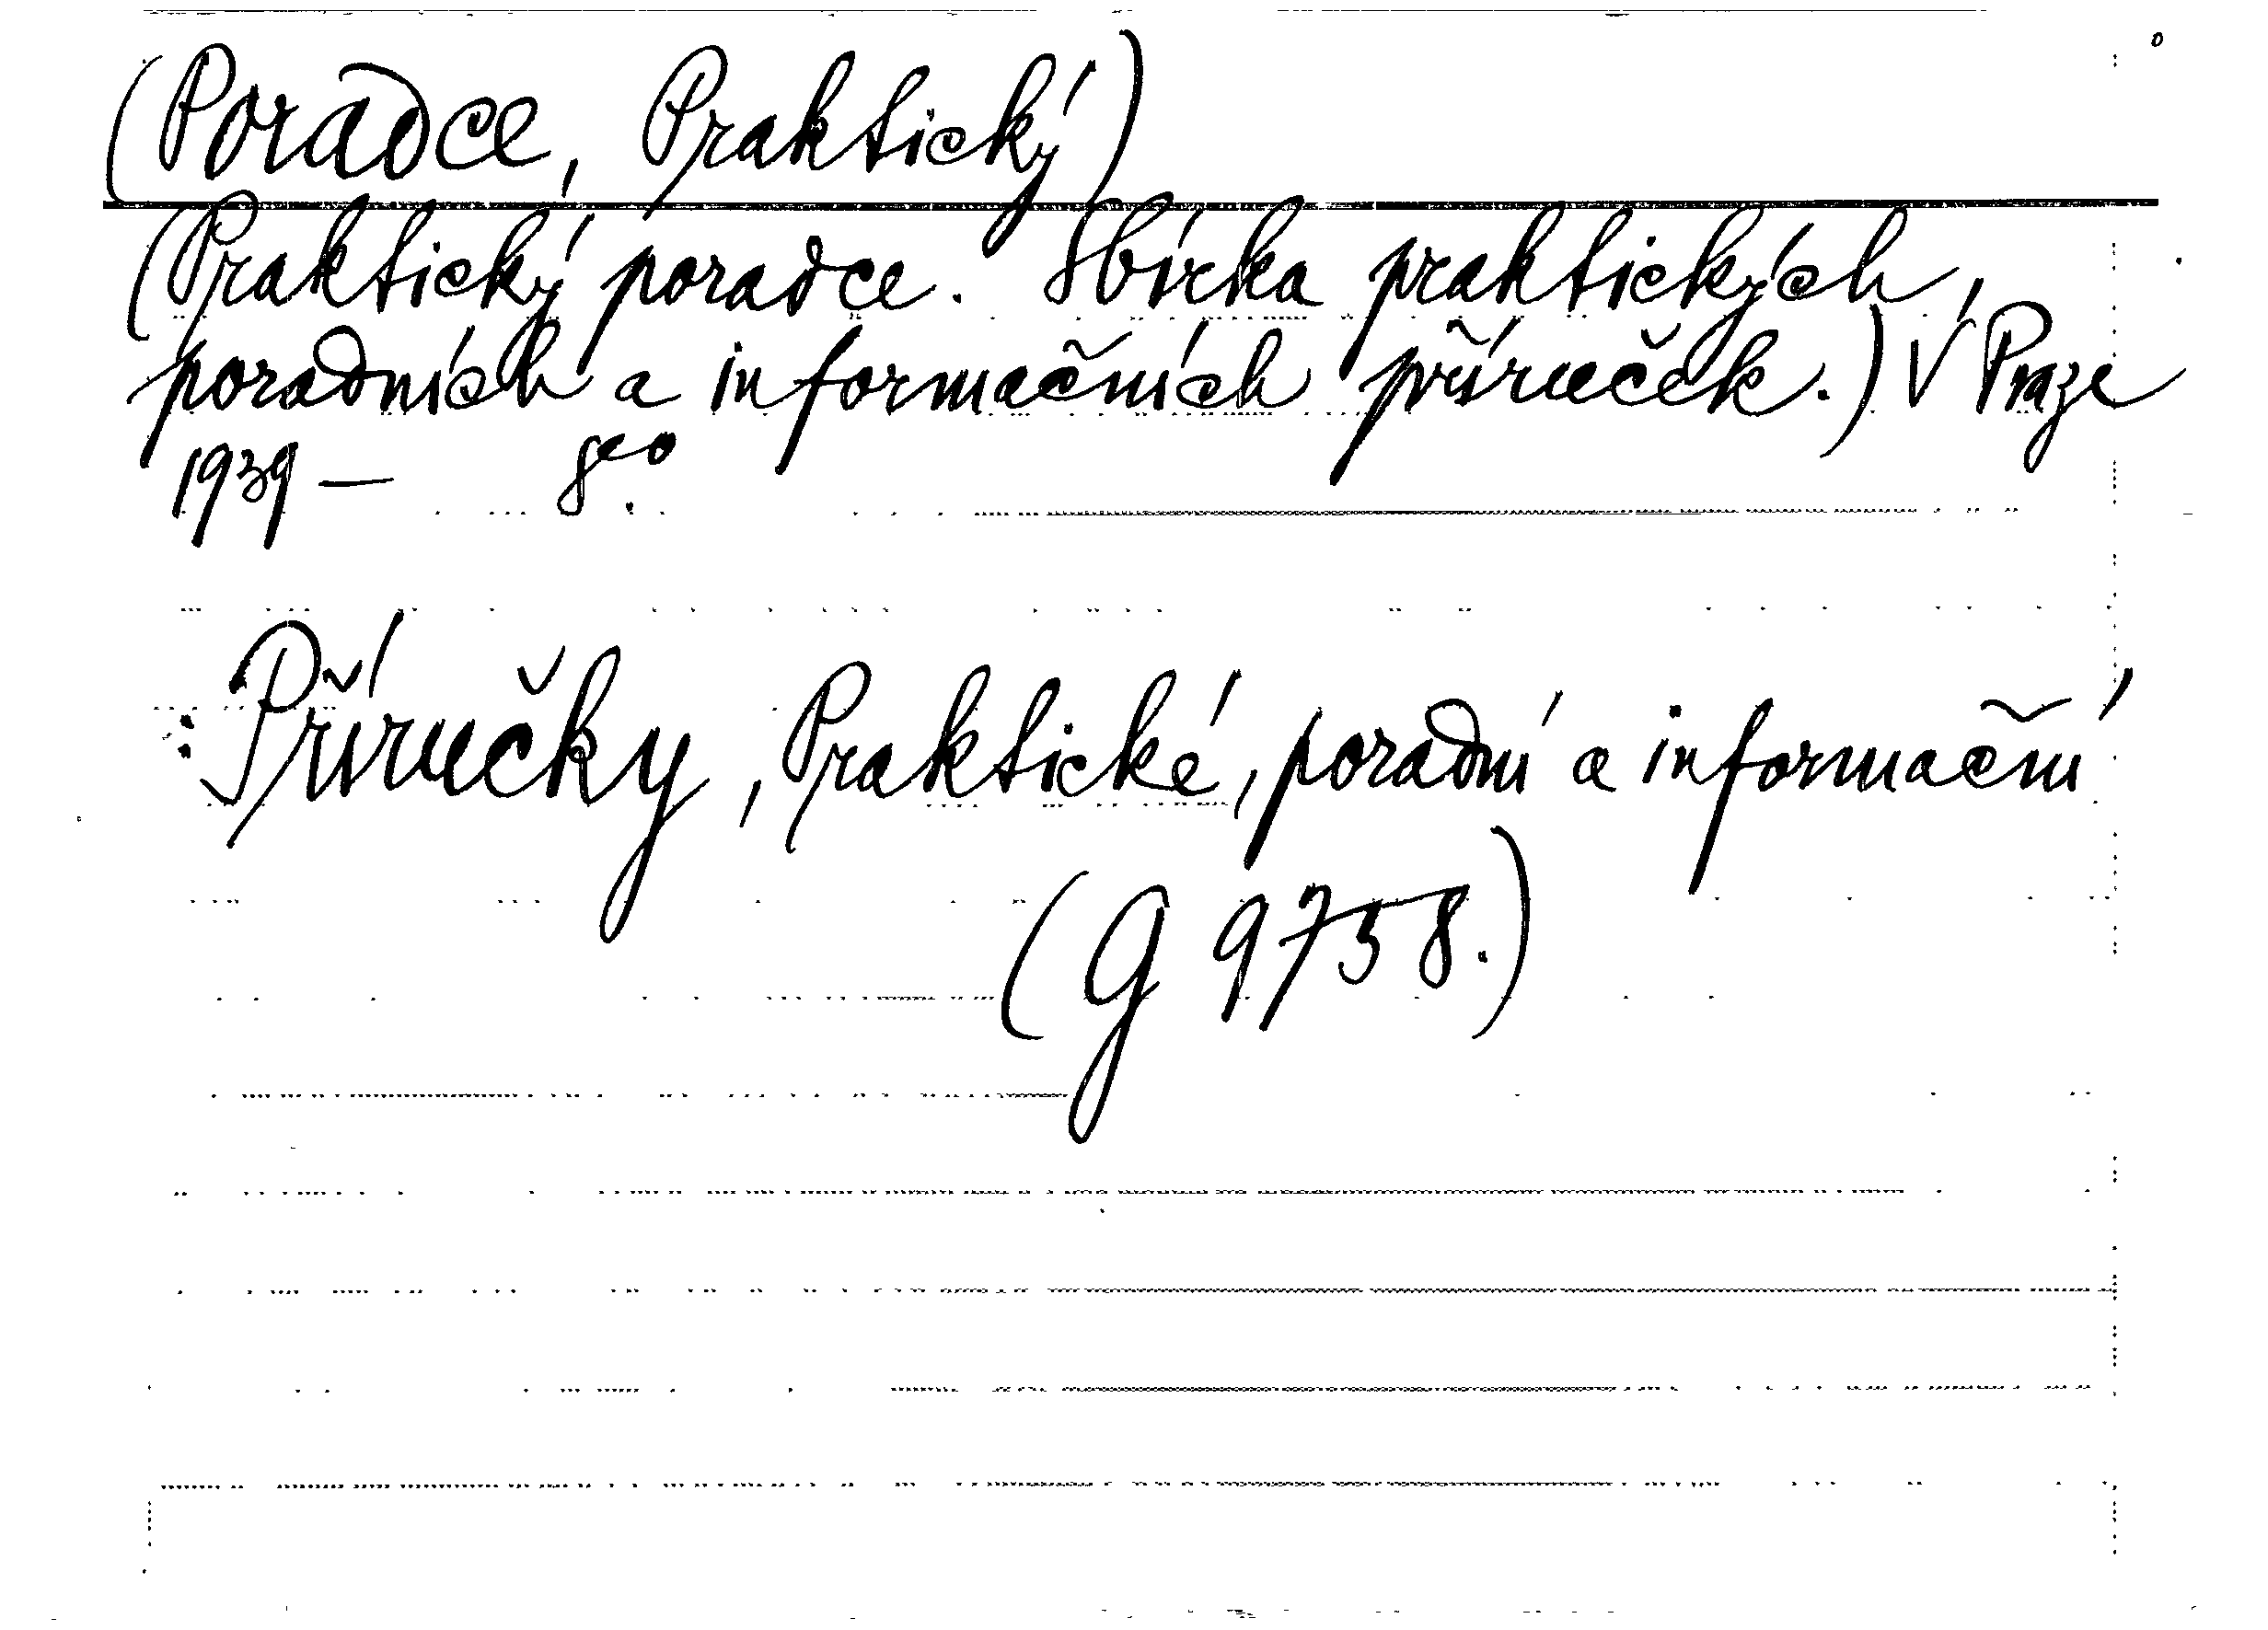 (Poradce, Praktický)
(Praktický poradce. Sbírka praktických,
poradních a informačních příruček.) V Praze
1939 — 8°.
: Příručky, Praktické, poradní a informační
(G 9758.)